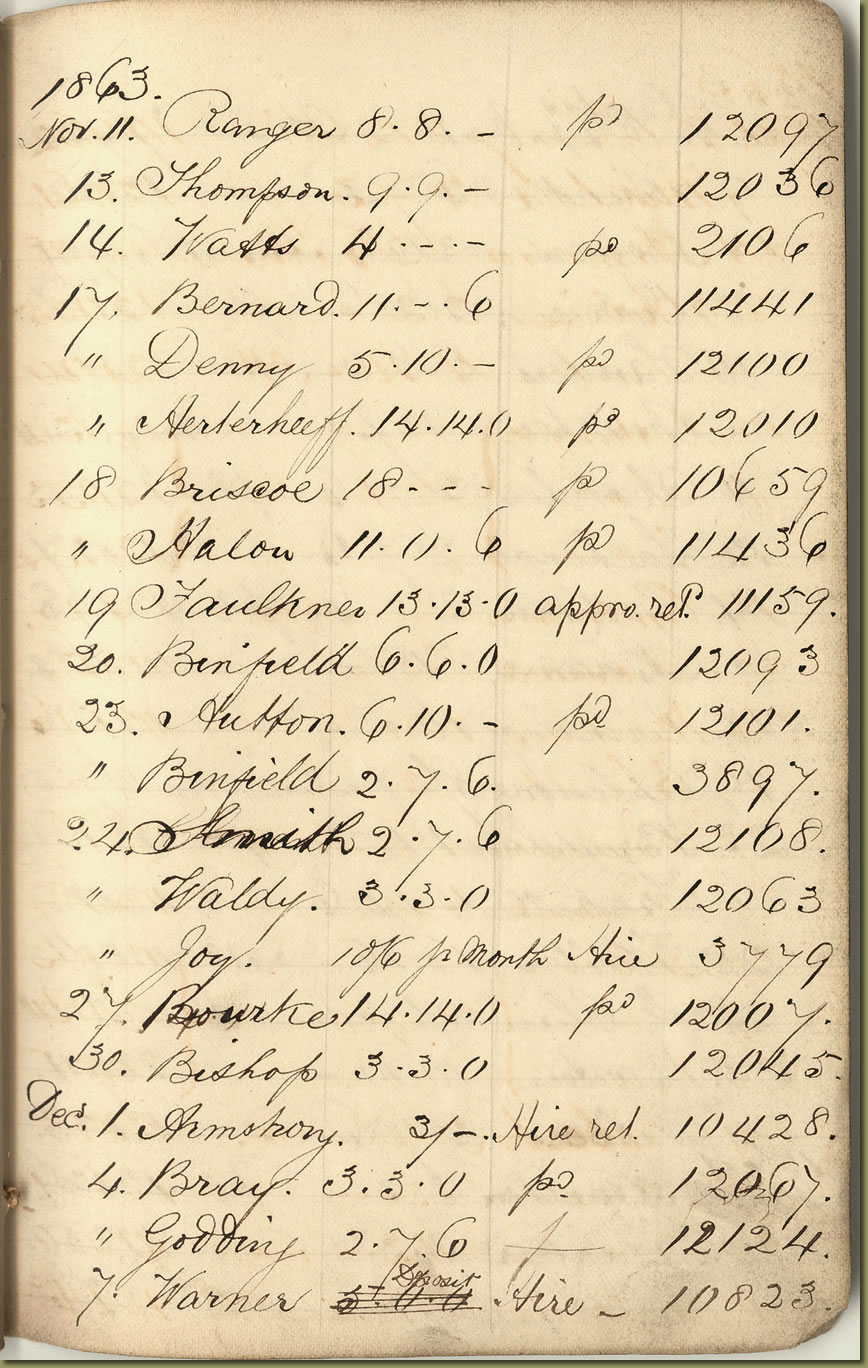 1863.
Nov. 11. Ranger 8. 8. - pd 12097
13. Thompson. 9. 9. - 12036
14. Watts 4. -. - pd 2106
17. Bernard. 11. -. 6 11441
" Denny 5. 10. - pd 12100
" 14. 14. 0 pd 12010
18 Briscoe 18 - - - p 10659
" 11. 0. 6 pd 11436
19 Faulkner 13. 13. 0 appro. retd. 11159.
20. Binfield 6. 6. 0 12093
23. Hutton. 6. 10. - pd 12101.
" Binfield 2. 7. 6. 3897.
24. Smith 2. 7. 6 12108.
" Waldy. 3. 3. 0 12063
" Joy. 10/6 pr Month Hire 3779
27. Bourke 14. 14. 0 pd 12007.
30. Bishop 3. 3. 0 12045.
Dec. 1. Armstrong. 3/-. Hire ret. 10428.
4. Bray. 3. 3. 0 pd 12067.
" Godding 2. 7. 6 12124.
Deposit
7. Warner 5. 0. 0 Hire - 10823.